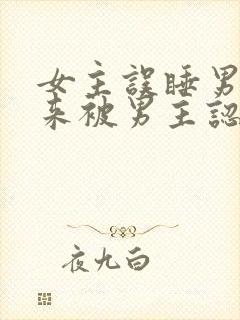 女主誤睡男
來被男主認
夜九白